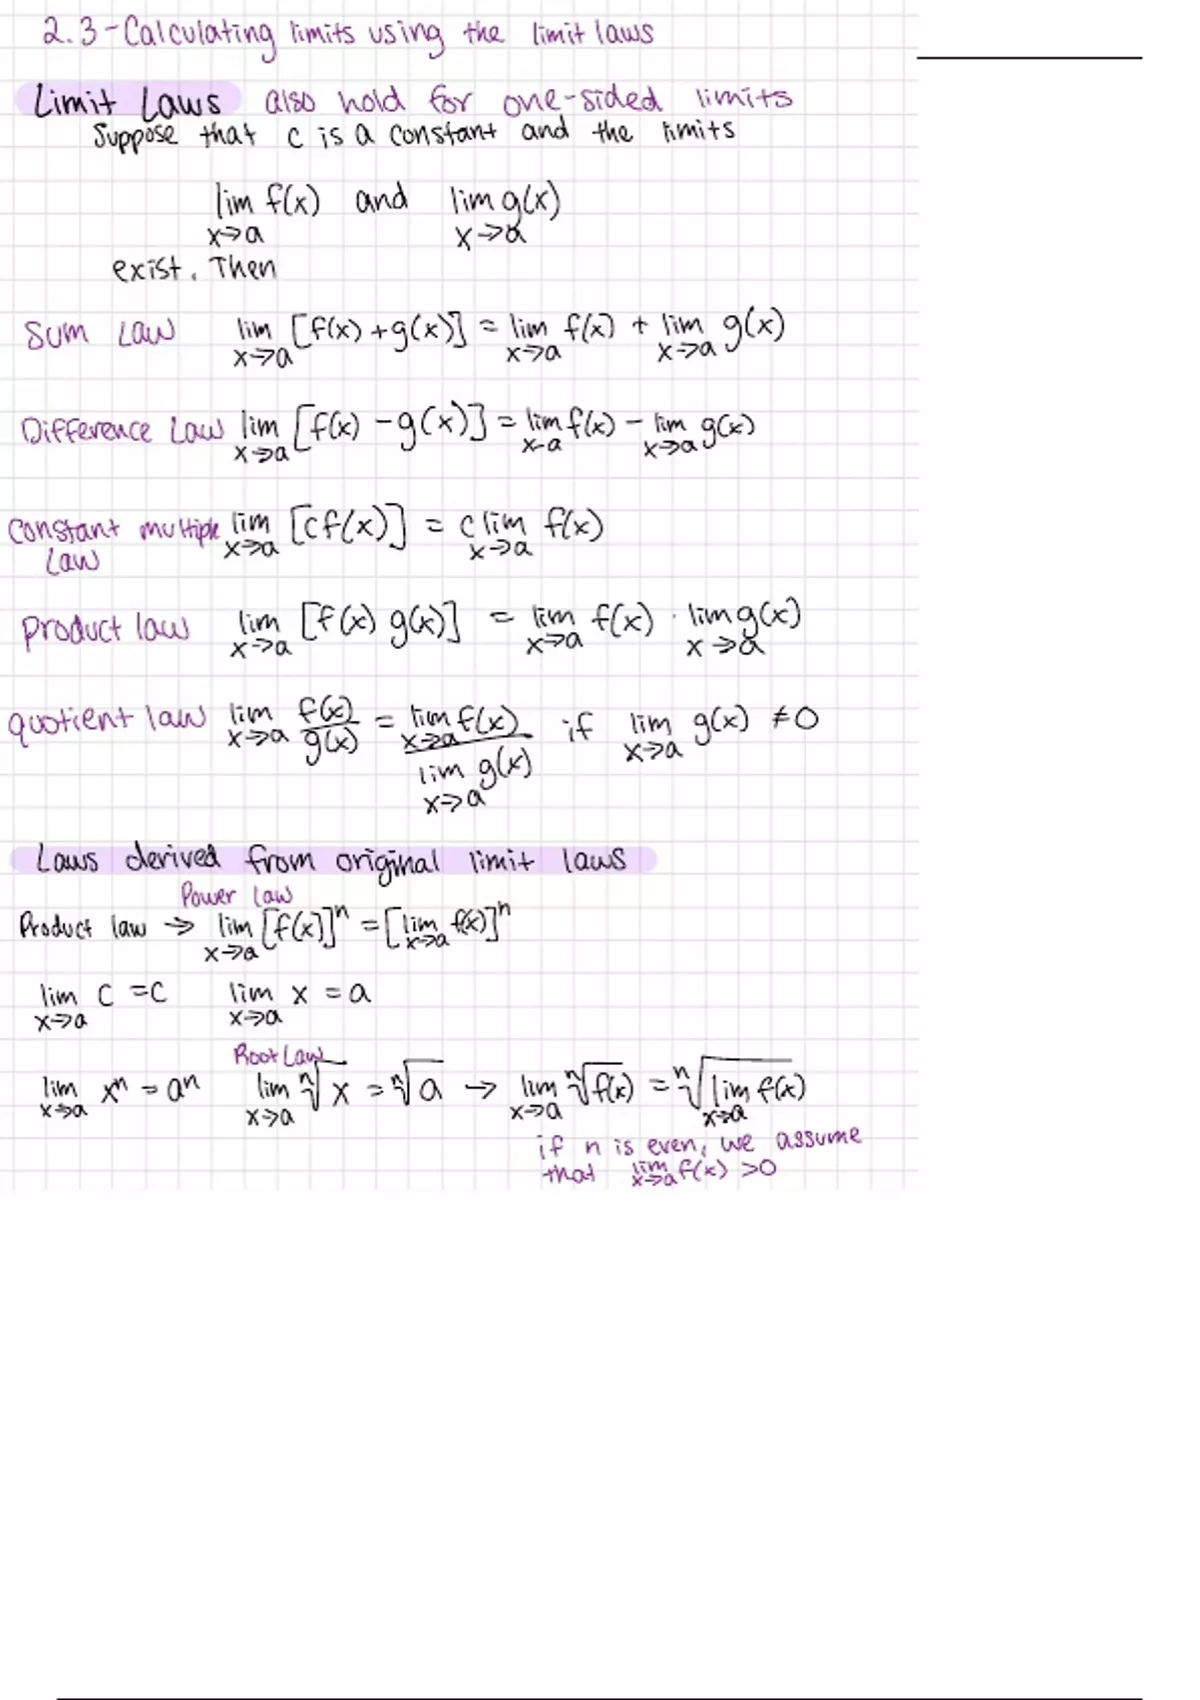 2.3-Calculating limits using the limit laws
Limit Laws also hold for one-sided limits
Suppose that c is a constant and the limits
lim f(x) and lim g(x)
x→a x→a
exist. Then
Sum Law lim [f(x)+g(x)] = lim f(x) + lim g(x)
x→a x→a x→a
Difference Law lim [f(x) -g(x)] = lim f(x) - lim g(x)
x→a x-a x→a
Constant multiple lim [cf(x)] = c lim f(x)
Law x→a x→a
product law lim [f(x) g(x)] = lim f(x) · lim g(x)
x→a x→a x→a
quotient law lim f(x)/g(x) = lim f(x) if lim g(x) ≠0
x→a x→a x→a
lim g(x)
x→a
Laws derived from original limit laws
Power law
Product law → lim [f(x)]ⁿ = [lim f(x)]ⁿ
x→a x→a
lim c =c lim x = a
x→a x→a
Root Law
lim xⁿ = aⁿ lim ⁿ√x = ⁿ√a → lim ⁿ√f(x) = ⁿ√lim f(x)
x→a x→a x→a x→a
if n is even, we assume
that lim f(x) >0
x→a